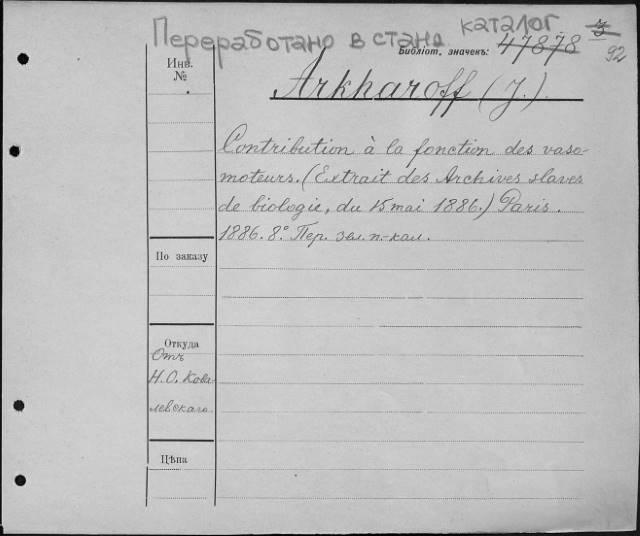 Переработано в стана каталог
Библіот. значекъ: 47878 3
92
Инв.
№
Arkharoff (J.).
Contribution à la fonction des vaso-
moteurs. (Extrait des Archives slaves
de biologie, du 15 mai 1886.) Paris.
1886. 8.° Пер. зел. п.-кал.
По заказу
Откуда
Отъ
Н.О. Кова-
левскаго.
Цѣна